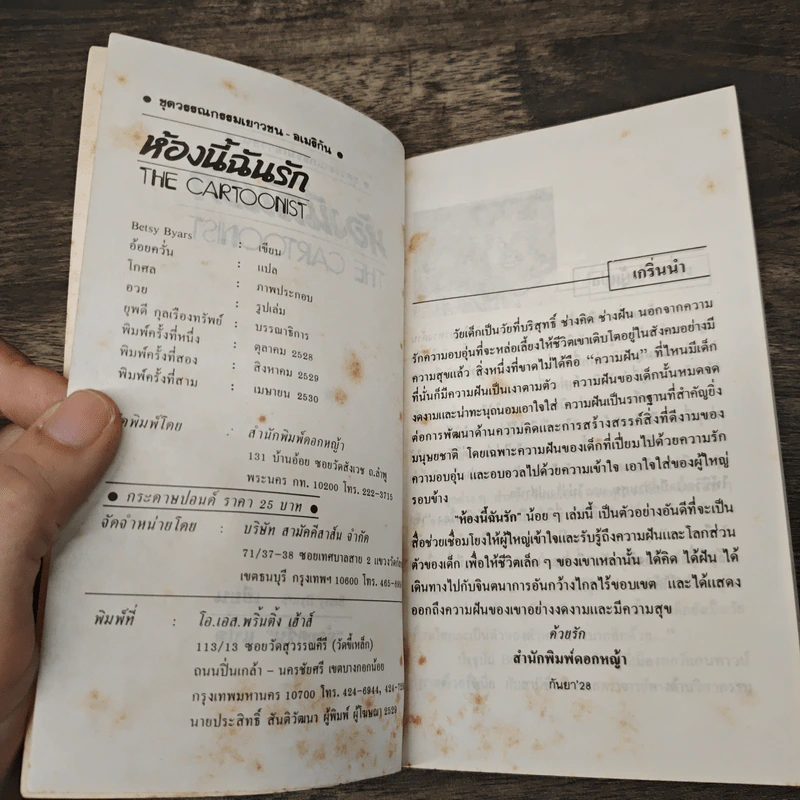 • ชุดวรรณกรรมเยาวชน - อเมริกัน •
ห้องนี้ฉันรัก
THE CARTOONIST
Betsy Byars : เขียน
อ้อยควั่น : แปล
โกศล : ภาพประกอบ
อวย : รูปเล่ม
ยุพดี กุลเรืองทรัพย์ : บรรณาธิการ
พิมพ์ครั้งที่หนึ่ง : ตุลาคม 2528
พิมพ์ครั้งที่สอง : สิงหาคม 2529
พิมพ์ครั้งที่สาม : เมษายน 2530
พิมพ์โดย : สำนักพิมพ์ดอกหญ้า
131 บ้านอ้อย ซอยวัดสังเวช ถ.ลำพู
พระนคร กท. 10200 โทร. 222-3715
• กระดาษปอนด์ ราคา 25 บาท •
จัดจำหน่ายโดย : บริษัท สามัคคีสาส์น จำกัด
71/37-38 ซอยเทศบาลสาย 2 แขวง
เขตธนบุรี กรุงเทพฯ 10600 โทร. 465-
พิมพ์ที่ : โอ.เอส.พริ้นติ้ง เฮ้าส์
113/13 ซอยวัดสุวรรณคีรี (วัดขี้เหล็ก)
ถนนปิ่นเกล้า - นครชัยศรี เขตบางกอกน้อย
กรุงเทพมหานคร 10700 โทร. 424-6944,
นายประสิทธิ์ สันติวัฒนา ผู้พิมพ์ ผู้โฆษณา 2529
เกริ่นนำ
วัยเด็กเป็นวัยที่บริสุทธิ์ ช่างคิด ช่างฝัน นอกจากความ
รักความอบอุ่นที่จะหล่อเลี้ยงให้ชีวิตเขาเติบโตอยู่ในสังคมอย่างมี
ความสุขแล้ว สิ่งหนึ่งที่ขาดไม่ได้คือ “ความฝัน” ที่ไหนมีเด็ก
ที่นั่นก็มีความฝันเป็นเงาตามตัว ความฝันของเด็กนั้นหมดจด
งดงามและน่าทะนุถนอมเอาใจใส่ ความฝันเป็นรากฐานที่สำคัญยิ่ง
ต่อการพัฒนาด้านความคิดและการสร้างสรรค์สิ่งที่ดีงามของ
มนุษยชาติ โดยเฉพาะความฝันของเด็กที่เปี่ยมไปด้วยความรัก
ความอบอุ่น และอบอวลไปด้วยความเข้าใจ เอาใจใส่ของผู้ใหญ่
รอบข้าง
“ห้องนี้ฉันรัก” น้อย ๆ เล่มนี้ เป็นตัวอย่างอันดีที่จะเป็น
สื่อช่วยเชื่อมโยงให้ผู้ใหญ่เข้าใจและรับรู้ถึงความฝันและโลกส่วน
ตัวของเด็ก เพื่อให้ชีวิตเล็ก ๆ ของเขาเหล่านั้น ได้คิด ได้ฝัน ได้
เดินทางไปกับจินตนาการอันกว้างไกลไร้ขอบเขต และได้แสดง
ออกถึงความฝันของเขาอย่างงดงามและมีความสุข
ด้วยรัก
สำนักพิมพ์ดอกหญ้า
กันยา'28